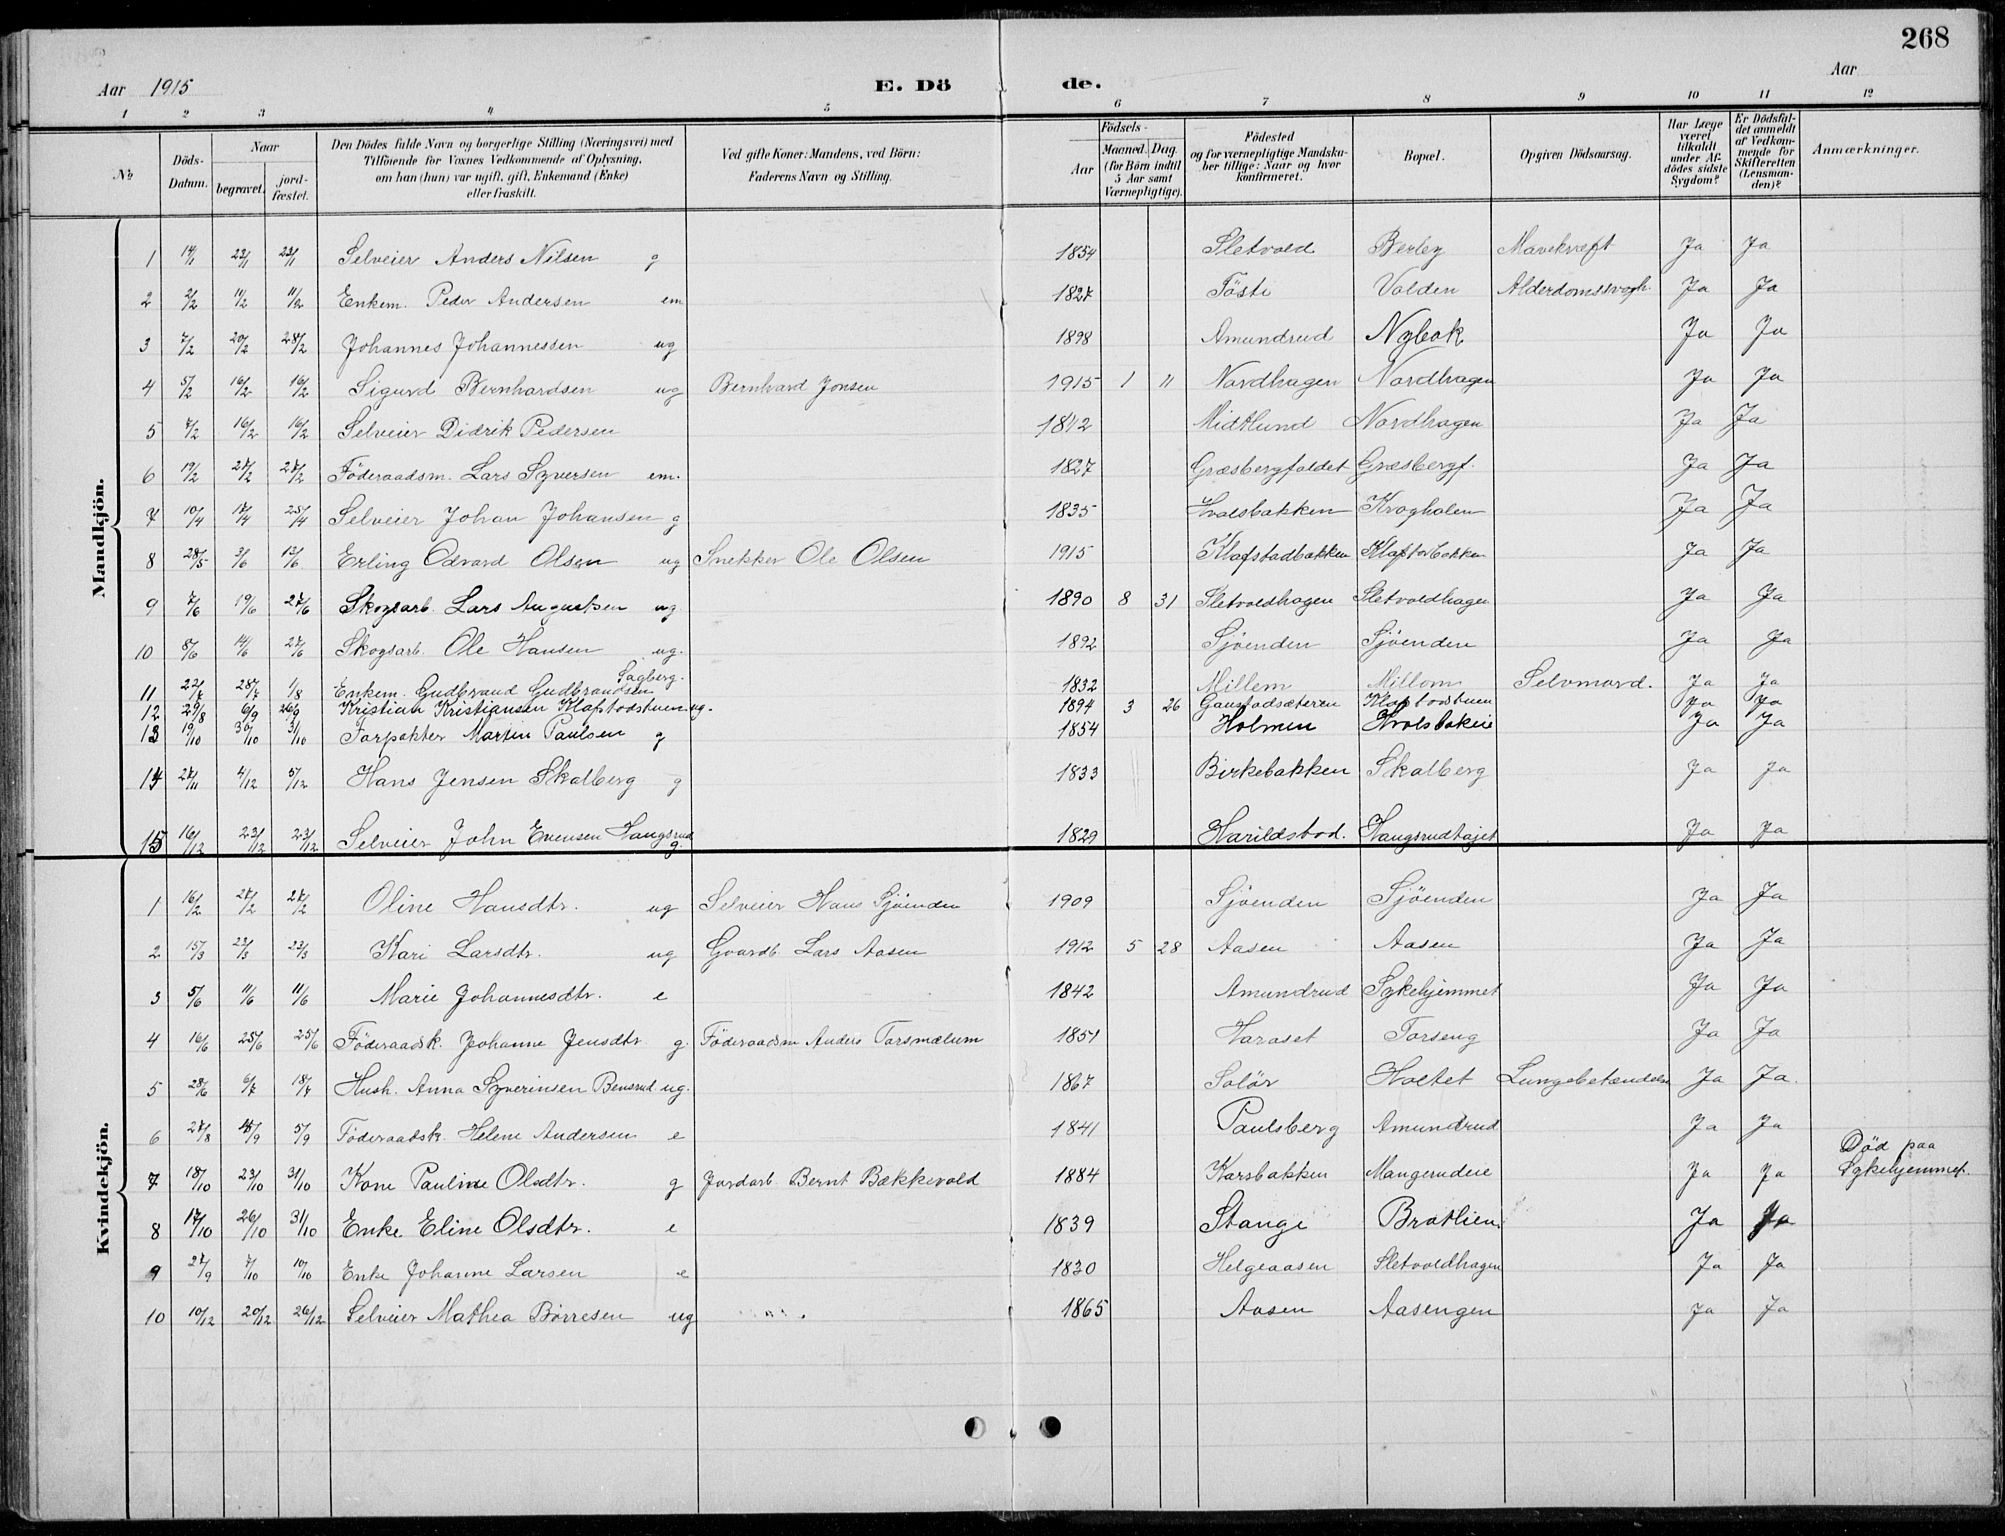 268
Aar 1915 E. Dö de. Aar
1 2 3 4 5 6 7 8 9 10 11 12
No
Döds-Datum.
Naar
begravet.
jordfæstet.
Den Dödes fulde Navn og borgerlige Stilling (Næringsvei) med Tilföiende for Voxnes Vedkommende af Oplysning, om han (hun) var ugift, gift, Enkemand (Enke) eller fraskilt.
Ved gifte Koner: Mandens, ved Börn: Faderens Navn og Stilling.
Aar
Födsels-
Maaned. Dag.
(for Börn indtil 5 Aar samt Værnepligtige).
Födested og for værnepligtige Mandskaber tillige: Naar og hvor konfirmeret.
Bopæl.
Opgiven Dödsaarsag.
Har Læge været tilkaldt under Afdödes sidste Sygdom?
Er Dödsfaldet anmeldt af Vedkommende for Skifteretten (Lensmanden)?
Anmærkninger.
Mandkjön.
1 14/1 23/1 23/1 Selveier Anders Nilsen g 1854 Sletvold Berley Mavekræft Ja Ja
2 2/2 11/2 11/2 Enkem. Peder Andersen em 1827 Tösti Volden Ja Ja
3 7/2 20/2 28/2 Johannes Johannessen ug 1898 Amundrud Nybak Ja Ja
4 5/2 16/2 16/2 Sigurd Bernhardsen ug Bernhard Jonsen 1915 1 11 Nordhagen Nordhagen Ja Ja
5 7/2 16/2 16/2 Selveier Didrik Pedersen 1842 Midtlund Nordhagen Ja Ja
6 19/2 27/2 27/2 Föderaadsm. Lars Syversen em. 1827 Græsbergfaldet Græsbergf. Ja Ja
7 10/4 17/4 25/4 Selveier Johan Johansen g 1835 Hvalsbakken Krogholen Ja Ja
8 28/5 3/6 13/6 Erling Odvard Olsen ug Snekker Ole Olsen 1915 Klafstadbakken Klafstadbakken Ja Ja
9 7/6 19/6 27/6 Skogsarb. Lars Augustsen ug 1890 8 31 Sletvoldhagen Sletvoldhagen Ja Ja
10 8/6 14/6 27/6 Skogsarb. Ole Hansen ug. 1892 Sjöenden Sjöenden Ja Ja
Sagberg.
11 22/7 28/7 1/8 Enkem. Gudbrand Gudbrandsen 1832 Millem Millom Selvmord. Ja Ja
12 29/8 6/9 26/9 Kristian Kristiansen Klafstadstuen ug. 1894 3 26 Gaustadsæteren Klafstadstuen Ja Ja
13 19/10 30/10 31/10 Forpakter Martin Paulsen g 1854 Holmen Hvalsbakeie Ja Ja
14 27/11 4/12 5/12 Hans Jensen Skalberg g 1833 Birkebakken Skalberg Ja Ja
15 16/12 23/12 23/12 Selveier John Evensen Haugsrud g. 1829 Harildstad. Haugsrudhøjet Ja Ja
Kvindekjön.
1 16/2 27/2 27/2 Oline Hansdtr. ug Selveier Hans Sjöenden 1909 Sjöenden Sjöenden Ja Ja
2 15/3 23/3 23/3 Kari Larsdtr. ug Gaardb Lars Aasen 1912 5 28 Aasen Aasen Ja Ja
3 5/6 11/6 11/6 Marie Johannesdtr. e 1842 Amundrud Sykehjemmet Ja Ja
4 16/6 25/6 25/6 Föderaadsk. Johanne Jensdtr g. Föderaadsm Anders Torsmælum 1851 Haraset Torseng Ja Ja
5 28/6 6/7 18/7 Hush. Anna Syverinsen Bensrud ug. 1867 Solör Holtet Lungebetændelse Ja Ja.
6 27/8 5/9 Föderaadsk. Helene Andersen e 1841 Paulsberg Amundrud Ja Ja
7 18/10 23/10 31/10 Kone Pauline Olsdtr. g Jordarb Bernt Bækkevold 1884 Karsbakken Mangerudeie Ja Ja Död paa Sykehjemmet.
8 17/10 26/10 31/10 Enke Eline Olsdtr. e 1839 Stange Bratlien Ja Ja
9 27/9 7/10 10/10 Enke Johanne Larsen e 1830 Helgeaasen Sletvoldhagen Ja Ja
10 10/12 20/12 26/12 Selveier Mathea Börresen ug 1865 Aasen Aasengen Ja Ja